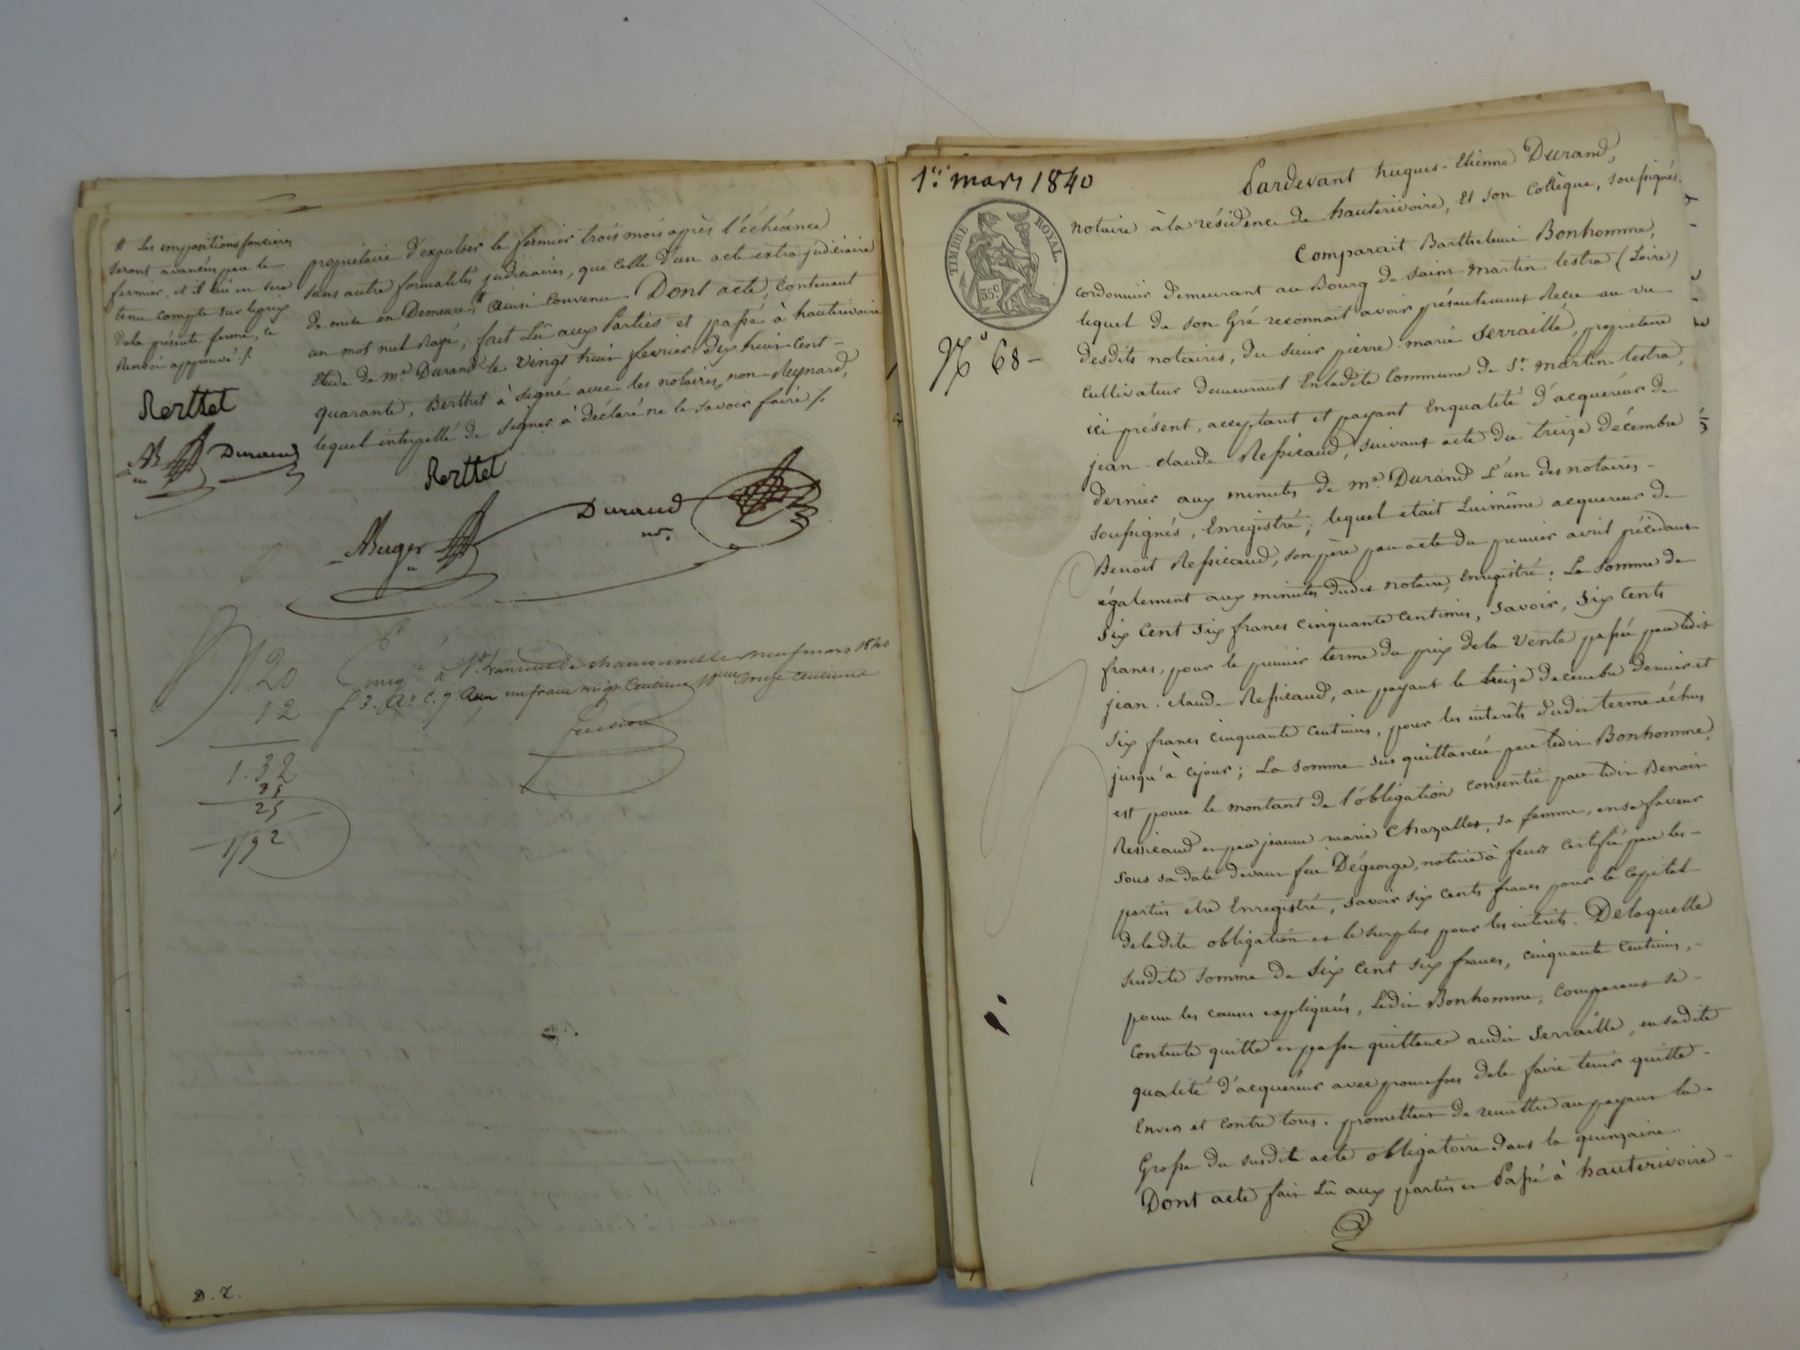 # Les impositions foncières
seront avancées par le
fermier, et il lui en sera
tenu compte sur le prix
de la présente ferme, ce
Renvoi approuvé /.
Berthet
AB Durand
propriétaire d'expulser le fermier trois mois après l'échéance
sans autre formalités judiciaires, que celle d'un acte extrajudiciaire
de mise en Demeure, # ainsi convenu. Dont acte, contenant
un mot nul Rayé, fait Lû aux Parties et passé à hauterivoire
Etude de me. Durand le vingt huit février dix huit cent-
quarante, Berthet à signé avec les notaires, non Reynard,
lequel interpellé de signer à déclaré ne le savoir faire /.
Berthet
Auger Durand
nre.
1.20
12
1.32
35
25
1,92
Enrgé à St. Laurent de chamousset le neuf mars 1840
f 3. Ro C. 7 un franc vingt centimes Xme douze centimes
D. R.
1er. mars 1840
TIMBRE ROYAL
35 c
No 68-
Pardevant hugues-Etienne Durand,
notaire à la résidence de hauterivoire, Et son Collègue, soussignés.
Comparait Barthelemi Bonhomme,
cordonnier demeurant au Bourg de saint martin lestra (Loire)
lequel de son Gré reconnait avoir présentement Reçu au vu
desdits notaires, du sieur pierre marie Serraille, propriétaire
cultivateur demeurant Enladite Commune de St. martin-lestra,
ici présent, acceptant et payant Enqualité d'acquereur de
jean-claude Ressicaud, suivant acte du treize décembre
dernier aux minutes de me. Durand L'un des notaires-
soussignés, Enregistré; lequel etait Luimême acquereur de
Benoit Ressicaud, son père par acte du premier avril précédant
également aux minutes dudit notaire, Enregistré; La Somme de
six cent six francs cinquante centimes, savoir, Six cents
francs, pour le premier terme du prix de la vente passée par ledit
jean-claude Ressicaud, au payant le treize décembre dernier et
six francs cinquante centimes, pour les intérêts dudit terme échus
jusqu'à cejour; La somme sus quittancée par ledit Bonhomme,
est pour le montant de l'obligation consentie par ledit Benoit
Ressicaud et par jeanne marie Chazalles, sa femme, ensa faveur
sous sa date devant feu Dégeorge, notaire à feurs certifié par les-
parties etre Enregistré, savoir six cents francs pour le capital
deladite obligation et le surplus pour les intérêts. Delaquelle
susdite somme de Six cent six francs, cinquante centimes,-
pour les causes expliquées, Ledit Bonhomme, comparant se-
contente quitte en passe quittance audit Serraille, ensadite
qualité d'acquereur avec promesses dele faire tenir quitte-
Envers et contre tous. promettant de remettre au payant la-
Grosse du susdit acte obligatoire dans la quinzaine.
Dont acte fait Lû aux parties et Passé à hauterivoire-